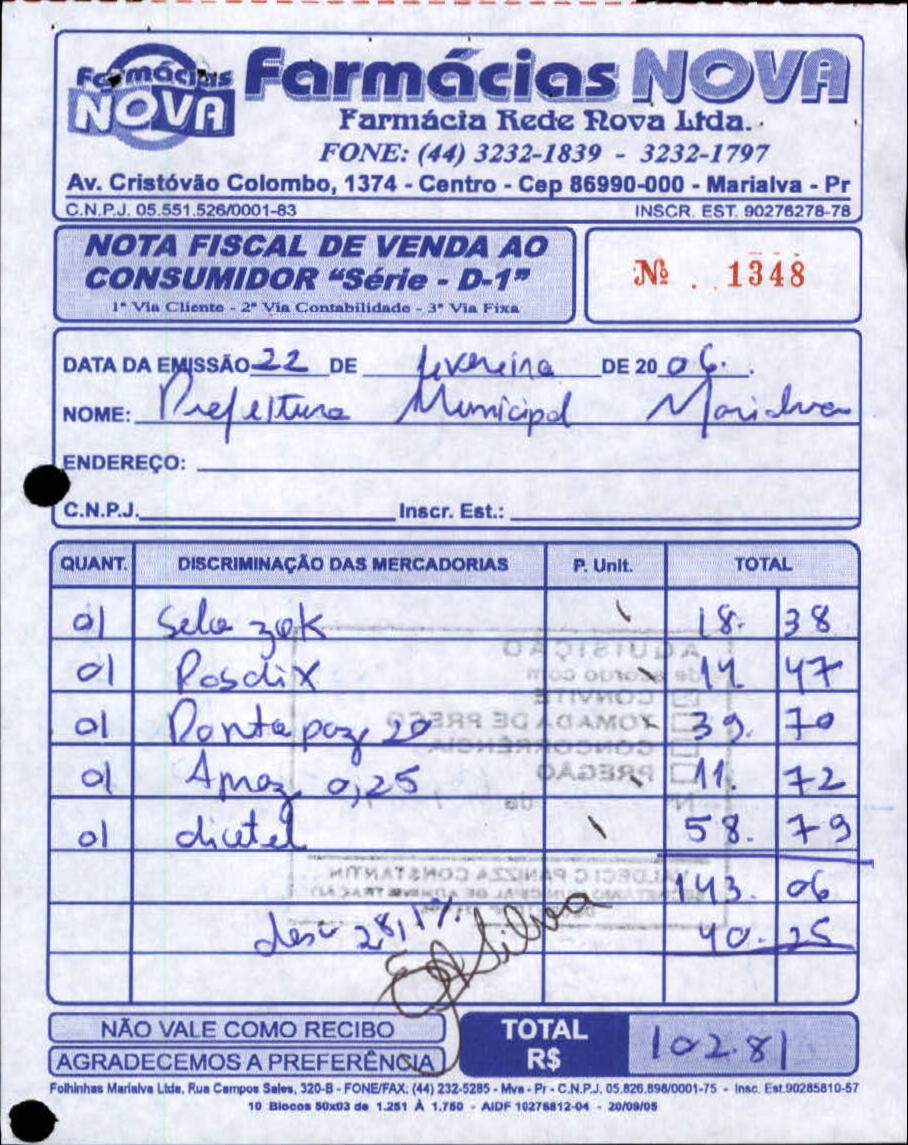 Farmácias NOVA
Farmácias NOVA
Farmácia Rede Nova Ltda.
FONE: (44) 3232-1839 - 3232-1797
Av. Cristóvão Colombo, 1374 - Centro - Cep 86990-000 - Marialva - Pr
C.N.P.J. 05.551.526/0001-83 INSCR. EST. 90276278-78
NOTA FISCAL DE VENDA AO
CONSUMIDOR "Série - D-1"
1ª Via Cliente - 2ª Via Contabilidade - 3ª Via Fixa
Nº 1348
DATA DA EMISSÃO 22 DE fevereiro DE 20 06.
NOME: Prefeitura Municipal Marialva
ENDEREÇO:
C.N.P.J. Inscr. Est.:
QUANT. DISCRIMINAÇÃO DAS MERCADORIAS P. Unit. TOTAL
01 Selozok 18. 38
01 14. 47
01 Pantopaz 20 39. 70
01 Apraz 0,25 11. 72
01 dicetel 58. 79
AQUISIÇÃO
de acordo com
CONVITE
TOMADA DE PREÇO
CONCORRÊNCIA
PREGÃO
Nº de
VALDECIC PANIZZA CONSTANTIN
SECRETARIO MUNICIPAL DE ADMINISTRAÇÃO
143. 06
desc 28,1%. 40. 25
Silva
NÃO VALE COMO RECIBO
AGRADECEMOS A PREFERÊNCIA
TOTAL
R$ 102.81
Folhinhas Marialva Ltda, Rua Campos Sales, 320-B - FONE/FAX: (44) 232-5285 - Mva - Pr - C.N.P.J. 05.826.898/0001-75 - Insc. Est.90285810-57
10 Blocos 50x03 de 1.251 À 1.750 - AIDF 10276812-04 - 20/09/05